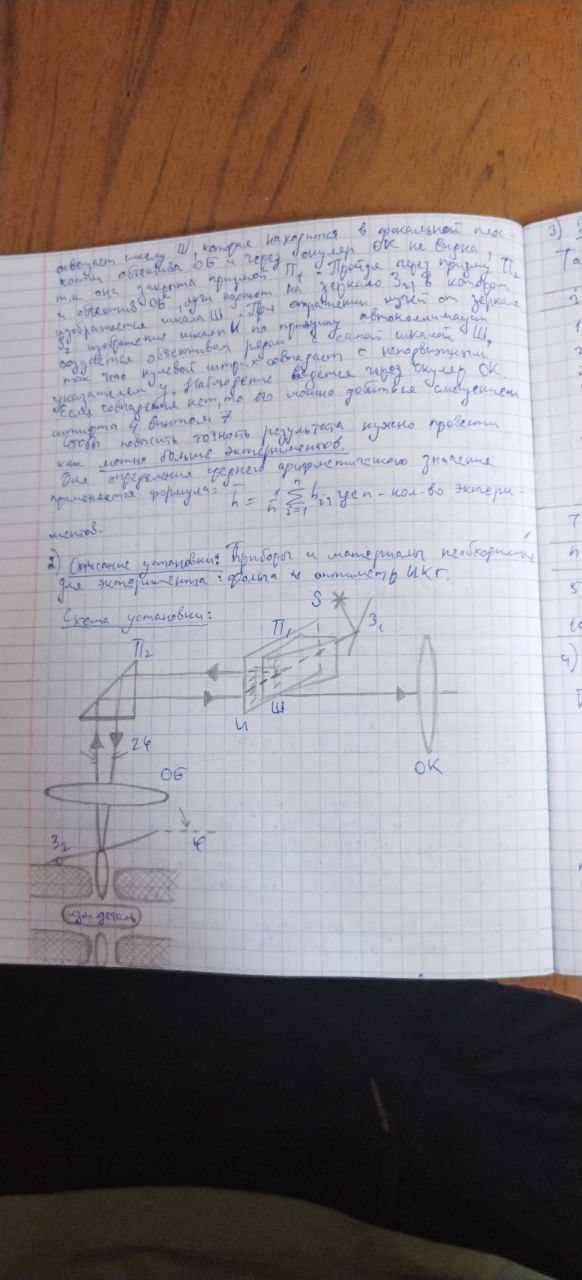 освещает шкалу Ш, которая находится в фокальной плос-
кости объектива ОБ и через окуляр ОК не видна,
т.к. она закрыта призмой П₁. Пройдя через призму П₂
и объектив ОБ, лучи падают на зеркало З₂, в котором
изображается шкала Ш. При отражении лучей от зеркала
З₂ изображение шкалы И по принципу автоколлимации
создаётся объективом рядом с самой шкалой Ш,
так что нулевой штрих совпадает с неподвижным
указателем У. Наблюдение ведется через окуляр ОК.
Если совпадения нет, то его можно добиться смещением
штифта 4 винтом 7
Чтобы повысить точность результата нужно провести
как можно больше экспериментов.
Для определения среднего арифметического значения
применяется формула: h̄ = 1/n ∑ⁿᵢ₌₁ hᵢ, где n - кол-во экспери-
ментов.
2) Описание установки: Приборы и материалы необходимые
для эксперимента: фольга и оптиметр ИКГ.
Схема установки:
S
З₁
П₁
П₂
И
Ш
ОК
2φ
ОБ
З₂
φ
изм. деталь
3)
Та
4)